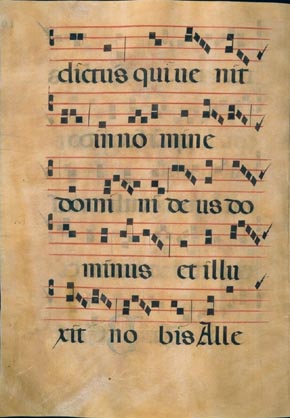 dictus qui ue nit
in no mine
domi ni de us do
minus et illu
xit no bis Alle